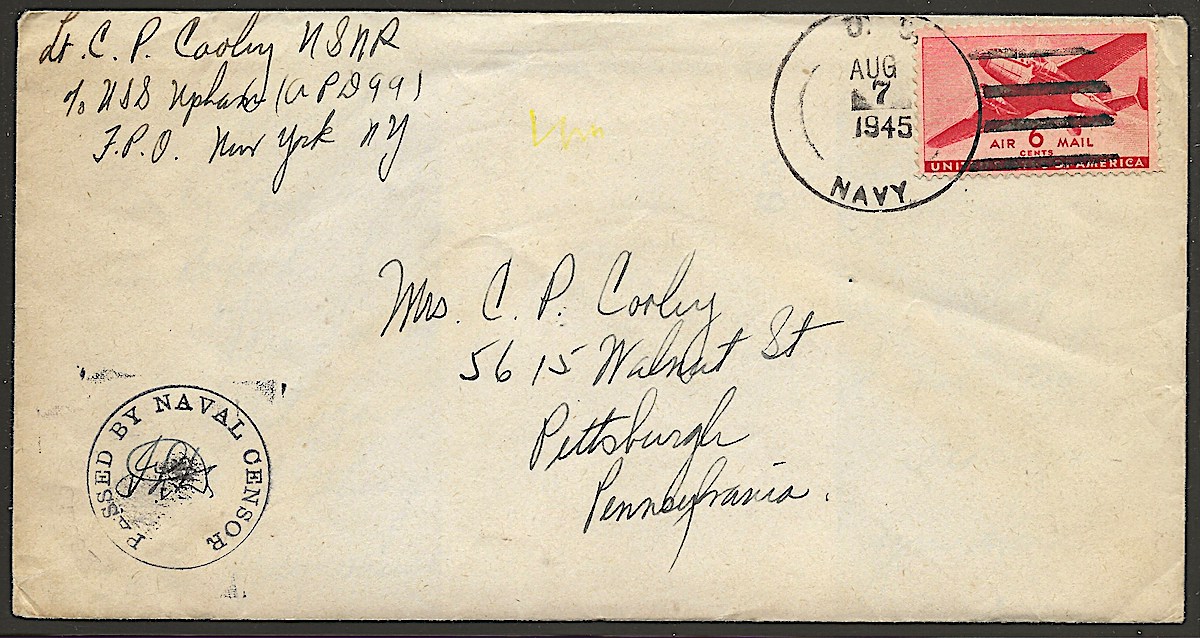 Lt. C. P. Cooley USNR
c/o USS Upham (APD 99)
F.P.O. New York NY
U. S.
AUG
7
1945
NAVY
AIR 6 MAIL
CENTS
UNIT OF AMERICA
Mrs. C. P. Cooley
5615 Walnut St
Pittsburgh
Pennsylvania.
PASSED BY NAVAL CENSOR